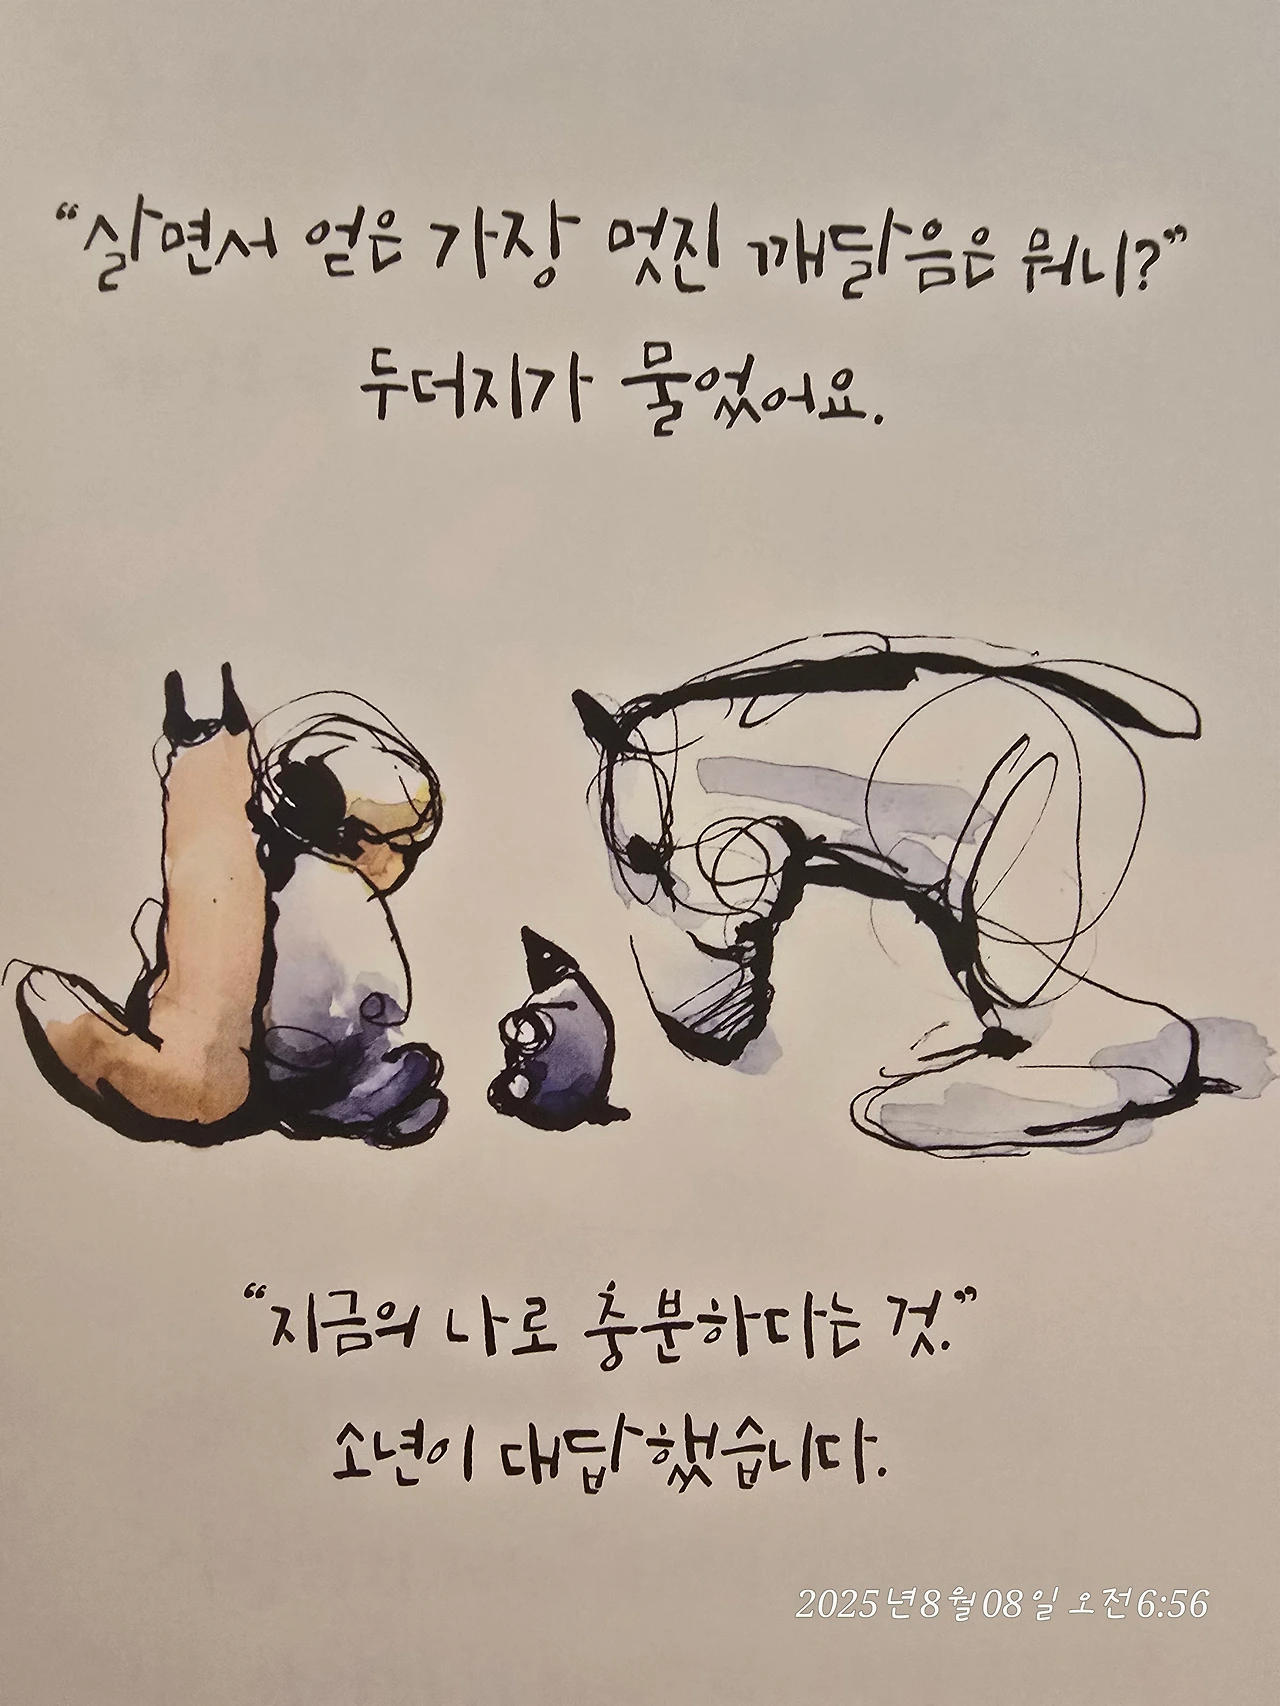 “살면서 얻은 가장 멋진 깨달음은 뭐니?”
두더지가 물었어요.
“지금의 나로 충분하다는 것.”
소년이 대답했습니다.
2025년8월08일 오전6:56